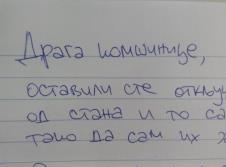 Драга комшинице,
оставили сте откључ
од стана и то са
тако да сам их